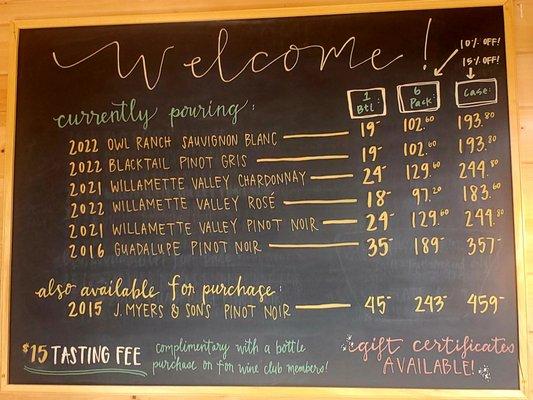 Welcome!
10% OFF!
15% OFF!
currently pouring: 1 Btl. 6 Pack. Case.
2022 OWL RANCH SAUVIGNON BLANC 19- 102.60 193.80
2022 BLACKTAIL PINOT GRIS 19- 102.60 193.80
2021 WILLAMETTE VALLEY CHARDONNAY 24- 129.60 244.80
2022 WILLAMETTE VALLEY ROSÉ 18- 97.20 183.60
2021 WILLAMETTE VALLEY PINOT NOIR 24- 129.60 244.80
2016 GUADALUPE PINOT NOIR 35- 189- 357-
also available for purchase:
2015 J. MYERS & SONS PINOT NOIR 45- 243- 459-
$15 TASTING FEE
complimentary with a bottle
purchase or for wine club members!
gift certificates
AVAILABLE!